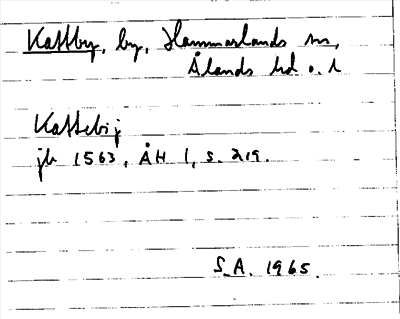 Kattby, by, Hammarlands sn,
Ålands hd o. l
Kattebij
jb 1563, ÅH 1, s. 219.
S.A. 1965.